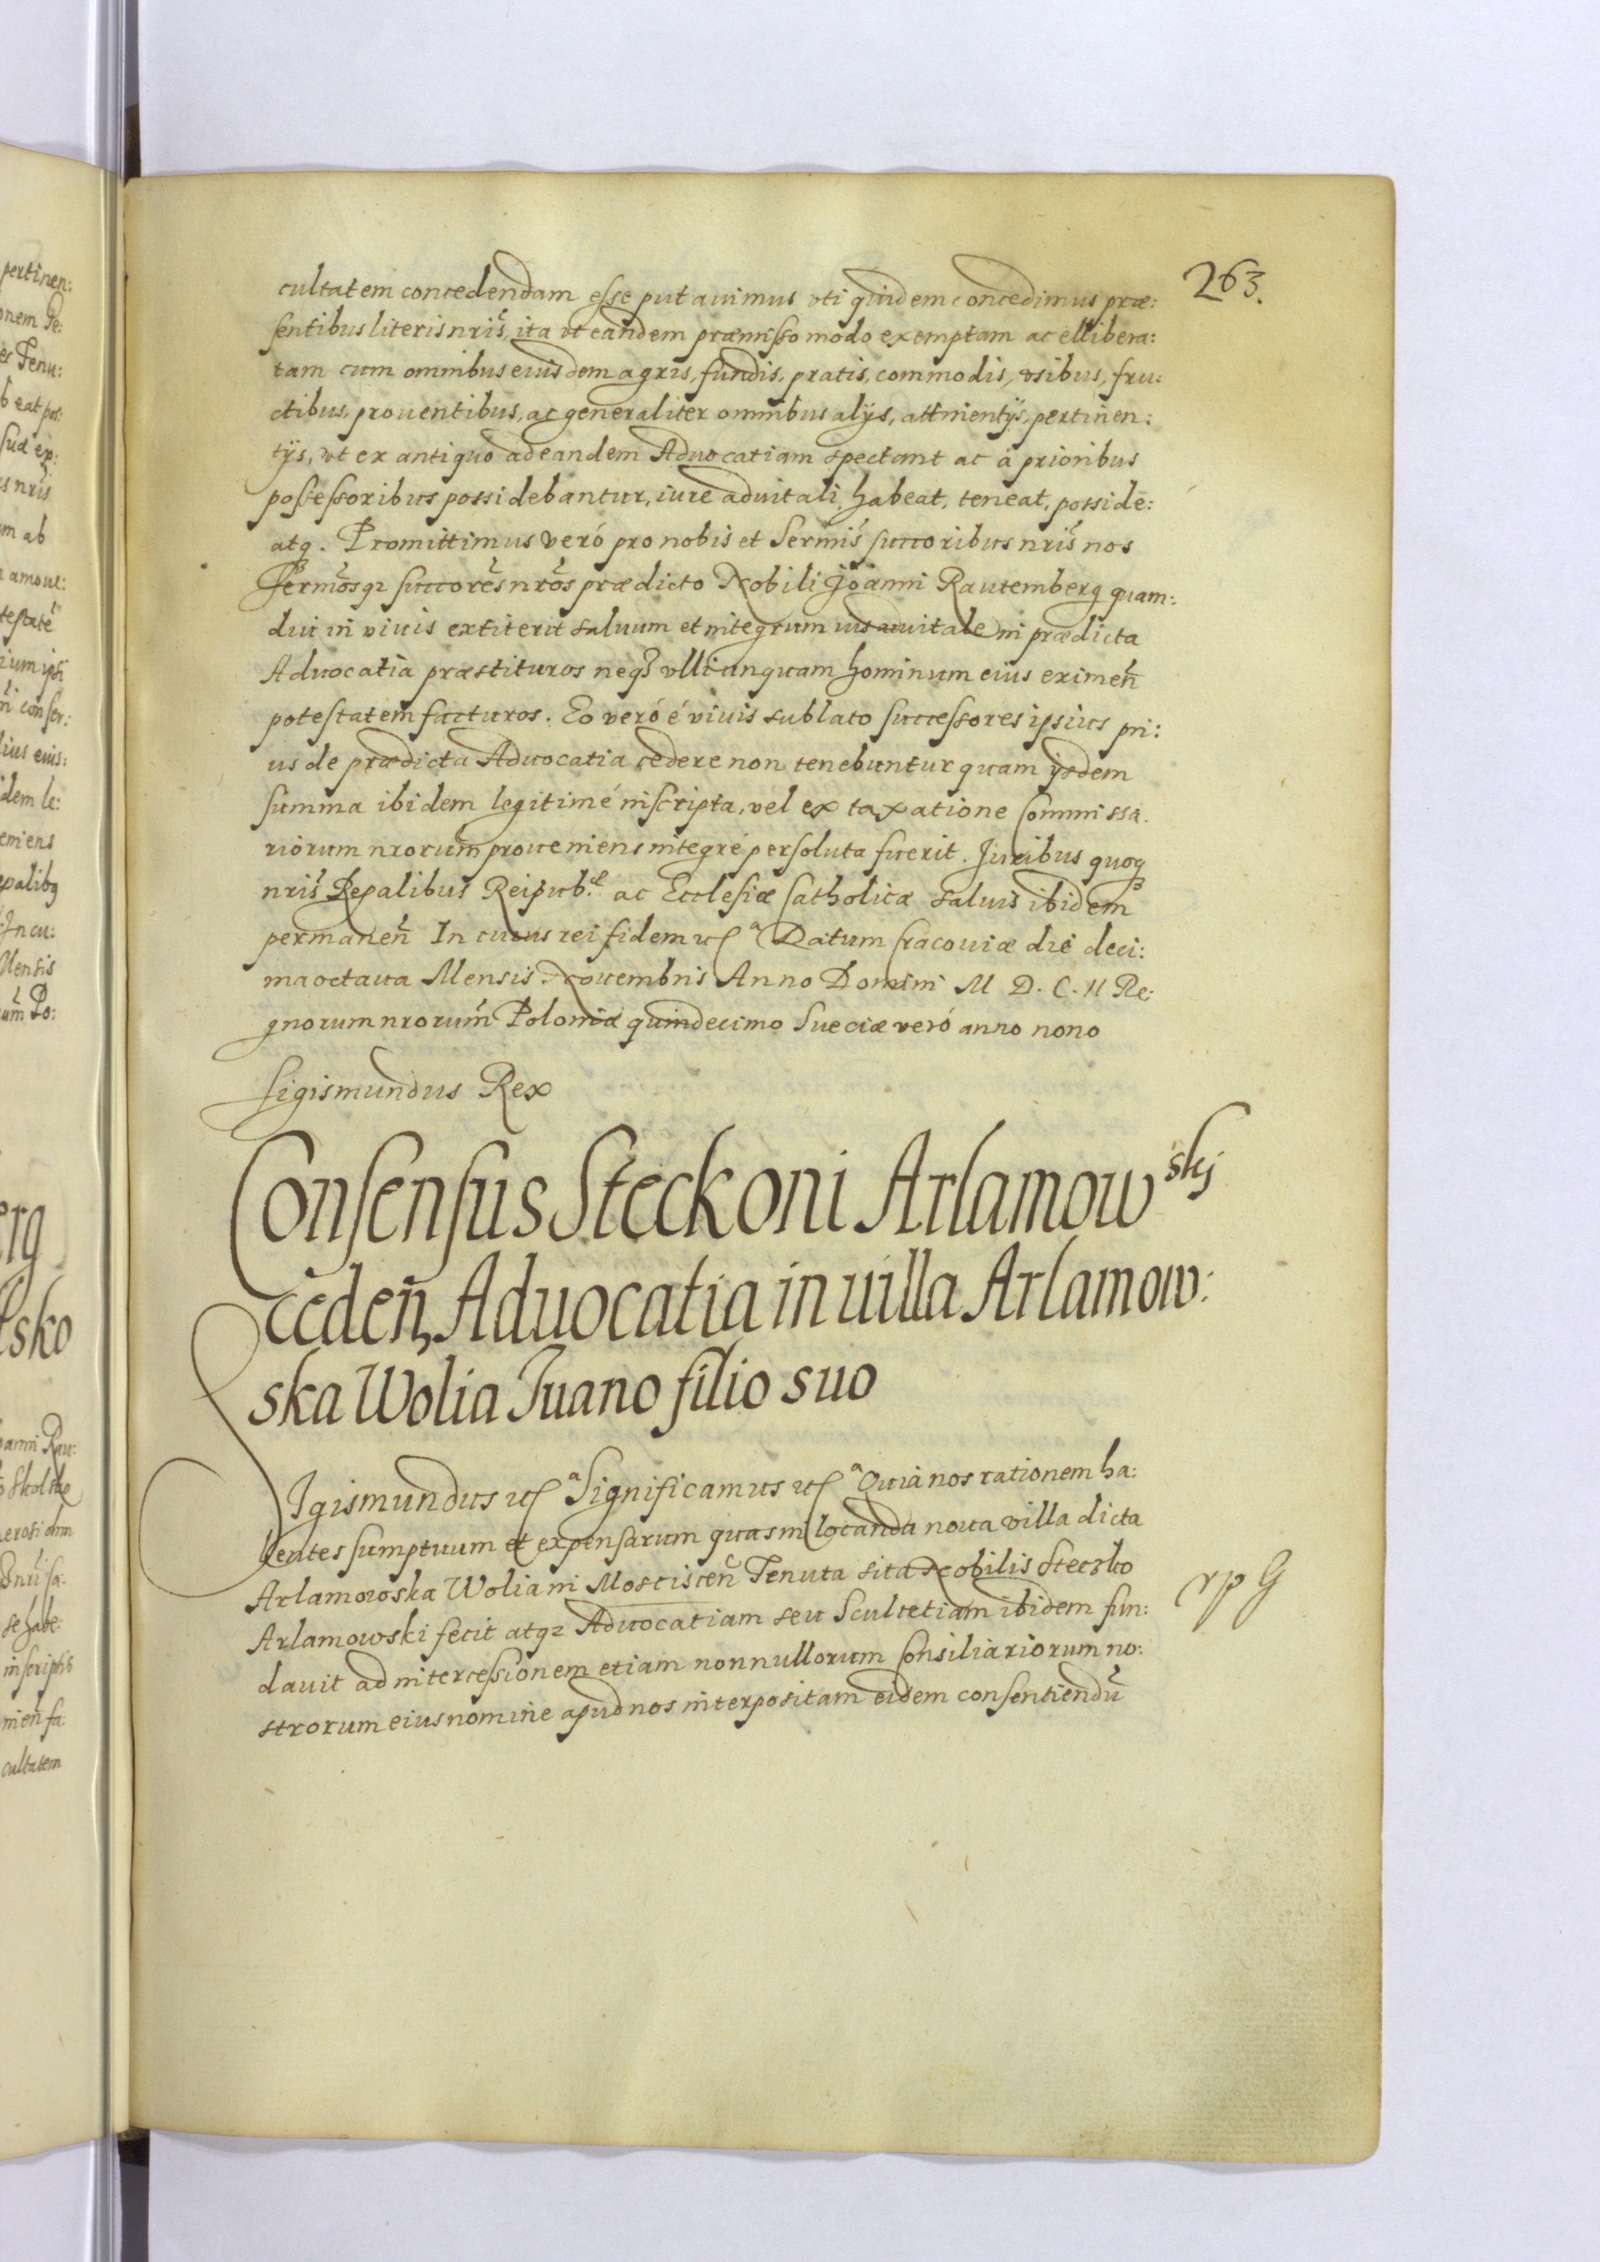 263.
cultatem concedendam esse putauimus vti quidem concedimus præ:
sentibus literis nris̃, ita vt eandem præmisso modo exemptam ac ellibera:
tam cum omnibus eiusdem agris, fundis, pratis, commodis, vsibus, fru:
ctibus, prouentibus, ac generaliter omnibus alijs, attinentijs, pertinen:
tijs, vt ex antiquo ad eandem Aduocatiam spectant ac à prioribus
possessoribus possidebantur, iure aduitali habeat, teneat, posside:
atq. Promittimus veró pro nobis et Sermis̃ succoribus nris̃ nos
Sermosq̃ succores̃ nros̃ prædicto Nobili Joanni Rautemberg quam:
diu in viuis extiterit saluum et integrum ius aduitale in prædicta
Aduocatia præstituros neq ulli unquam hominum eius eximeñ
potestatem facturos. Eo veró é viuis sublato successores ipsius pri:
us de prædicta Aduocatia cedere non tenebuntur quam ijsdem
summa ibidem legitimé inscripta, vel ex taxatione Commissa.
riorum nrorum̃ proueniens integré persoluta fuerit. Juribus quoq
nris̃ Regalibus Reipub.e ac Ecclesiæ Catholicæ saluis ibidem
permaneñ In cuius rei fidem etc.a Datum Cracouiæ die deci:
ma octaua Mensis Nouembris Anno Domini M D. C. II Re:
gnorum nrorum̃ Poloniæ quindecimo Sueciæ veró anno nono
Sigismundus Rex
Consensus Steckoni Arlamowskj
cedeñ, Aduocatia in uilla Arlamow:
ska Wolia Iuano filio suo
SIgismundus etc.a Significamus etc.a Quia nos rationem ha:
bentes sumptuum et expensarum quas in locanda noua villa dicta
Arlamowska Wolia in Mosticiceñ Tenuta sita Nobilis Stecko
Arlamowski fecit atq Aduocatiam seu Scultetiam ibidem fun:
dauit ad intercessionem etiam nonnullorum Consiliariorum no:
strorum eius nomine apud nos interpositam eidem consentiendũ
pertinen:
Tenu:
m ab
erg
sko
cultatem